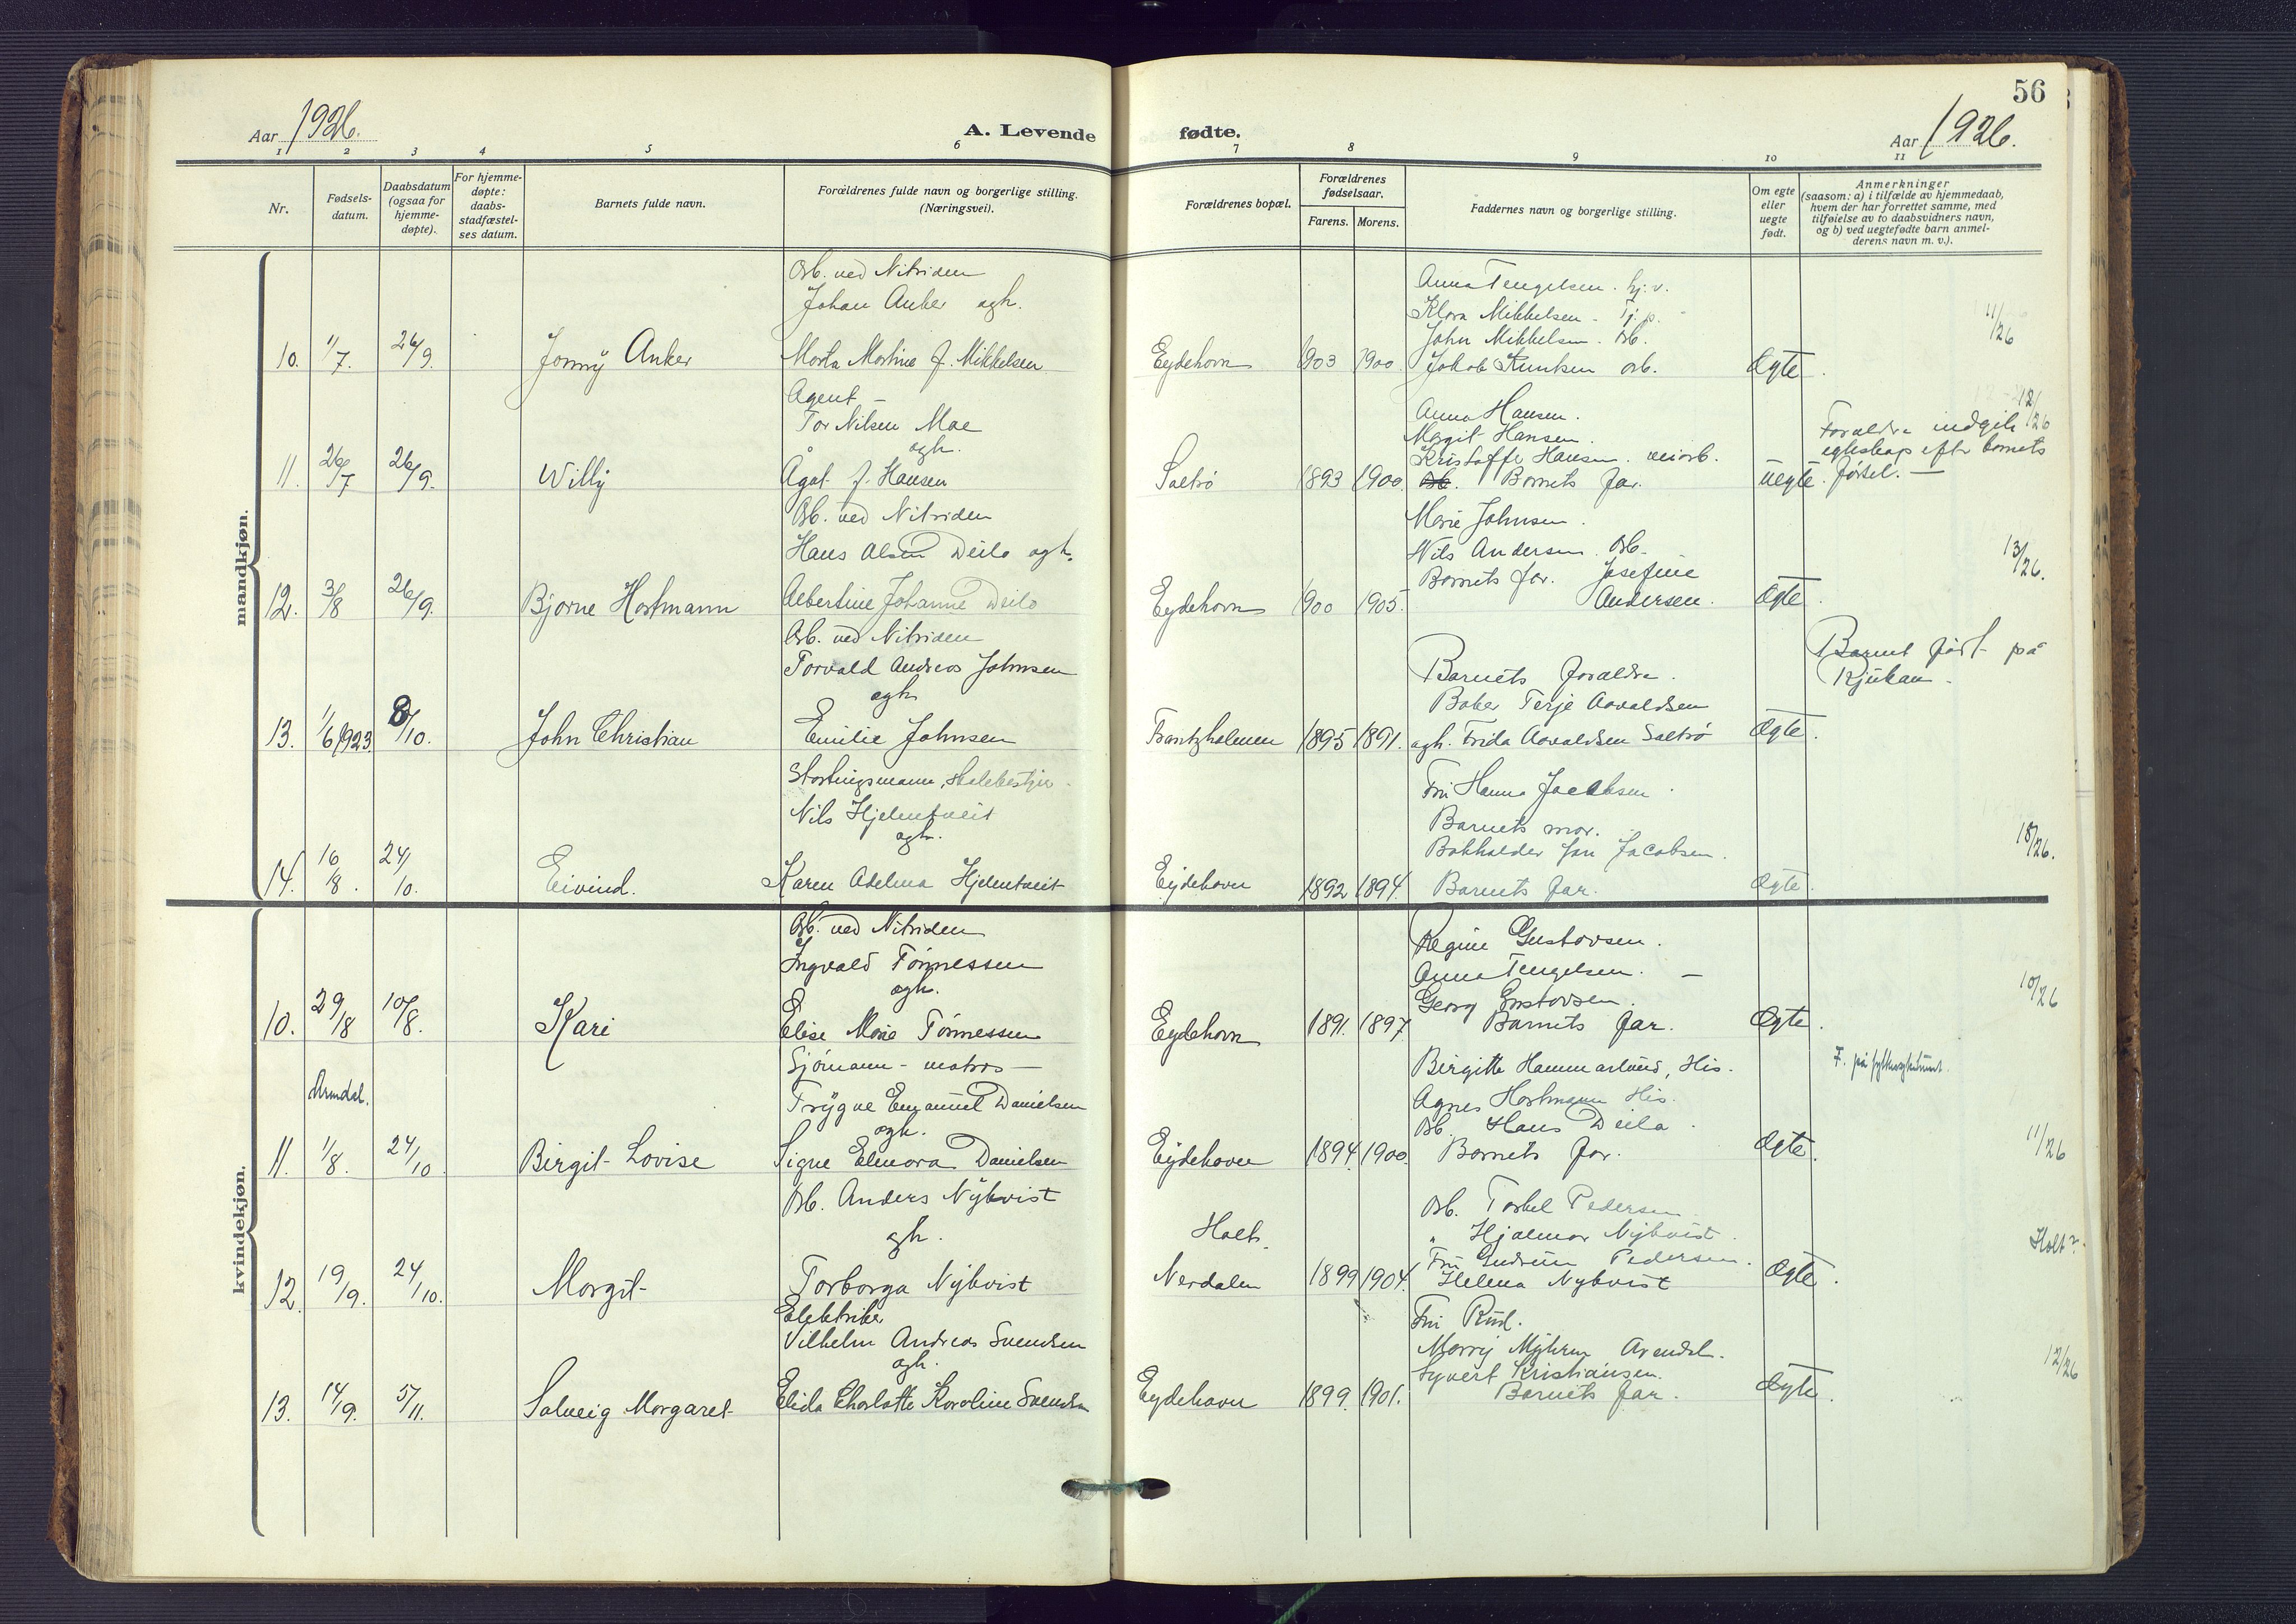 56
Aar 1926.
A. Levende fødte.
Aar 1926.
1 2 3 4 5 6 7 8 9 10 11
Nr.
Fødsels-
datum.
Daabsdatum
(ogsaa for
hjemme-
døpte).
For hjemme-
døpte:
daabs-
stadfæstel-
ses datum.
Barnets fulde navn.
Forældrenes fulde navn og borgerlige stilling.
(Næringsvei).
Forældrenes bopæl.
Forældrenes
fødselsaar.
Farens. Morens.
Faddernes navn og borgerlige stilling.
Om egte
eller
uegte
født.
Anmerkninger
(saasom: a) i tilfælde av hjemmedaab,
hvem der har forrettet samme, med
tilføielse av to daabsvidners navn,
og b) ved uegtefødte barn anmel-
derens navn m. v.).
mandkjøn.
10. 1/7. 26/9. Jonny Anker
Arb. ved Nitriden
Johan Anker ogh.
Marta Martine f. Mikkelsen
Eydehavn 1903 1900
Anna Tengelsen. hj. v.
Klara Mikkelsen - Tj. p.
John Mikkelsen. Arb.
Jakob Knutsen arb.
Ægte.
11/26
11. 26/7 26/9. Willy
Agent -
Tor Nilsen Moe
ogh.
Ågot f. Hansen
Saltrø 1893 1900.
Anna Hansen.
Margit Hansen.
Kristoffe Hansen. veiarb.
Barnets far.
uegte.
12/26
Foraldre indgik
egteskap eftr barnets
førsel. -
12. 3/8 26/9. Bjarne Hartmann
Arb. ved Nitriden
Hans Alsen Deila ogh.
Albertine Johanne Deila
Eydehavn 1900 1905.
Marie Johnsen.
Nils Andersen. Arb.
Barnets far. Josefine
Andersen.
Ægte.
13/26.
13. 1/6 1923. 8/10. John Christian
Arb. ved Nitriden
Torvald Andreas Johnsen
ogh
Emilie Johnsen
Frantzholmen 1895 1891.
Barnets foraldre.
Baker Terje Aavaldsen
ogh. Frida Aavaldsen Saltrø
Ægte.
Barnet født på
Rjukan -
14. 16/8. 24/10. Eivind.
Stortingsmann,
Nils Hjelmtveit
ogh.
Karen Adelina Hjelmtveit
Eydehavn 1892 1894.
Fru Hanna Jacobsen.
Barnets mor.
Bokholder Jon Jacobsen.
Barnets far.
Ægte.
18/26.
kvindekjøn.
10. 29/8 10/8. Kari
Arb. ved Nitriden
Ingvald Tønnessen
ogh.
Elise Marie Tønnessen
Eydehavn 1891. 1897
Regine Gustavsen.
Anna Tengelsen. -
Georg Gustavsen.
Barnets far.
Ægte.
10/26
Arendal.
11. 1/8. 24/10 Birgit Lovise
Sjømann - matros -
Trygve Emanuel Danielsen
ogh.
Signe Elenora Danielsen
Eydehavn 1894. 1900.
Birgitte Hammarlund, His.
Agnes Hartmann His.
Arb. Hans Deila.
Barnets far.
Ægte.
F. på
11/26
12. 19/9. 24/10. Margit
Arb. Anders Nykvist
ogh.
Torborga Nykvist
Holt.
Nerdalen 1899 1904.
Arb. Torkel Pedersen
" Hjalmar Nykvist.
Fru Gudrun Pedersen.
Helena Nykvist
Ægte.
Holt?
13. 14/9. 5/11. Solveig Margaret
Elektriker
Vilhelm Andreas Svendsen
ogh.
Elida Charlotte Karoline Svendsen
Eydehavn 1899. 1901.
Fru Rud.
Marry Myhren Arendal.
Syvert Kristiansen.
Barnets far.
Ægte.
12/26